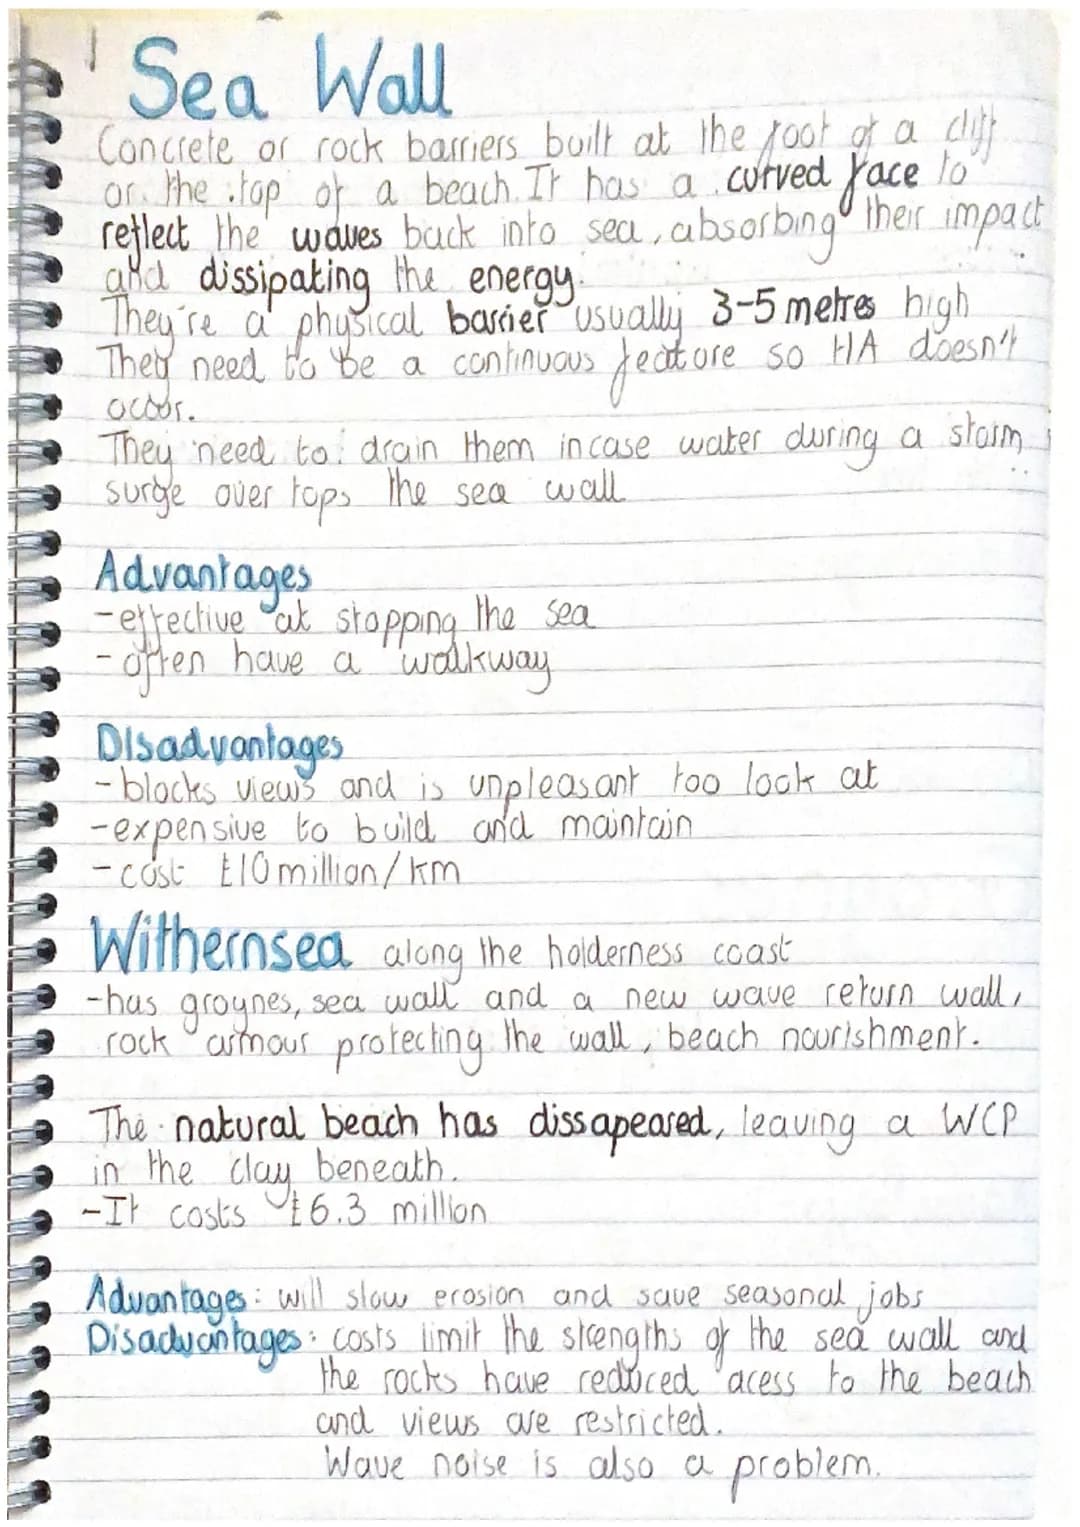 Sea Wall
Concrete or rock barriers built at the foot of a cliff
or the top of a beach. It has a curved face to
reflect the waves back into sea, absorbing their impact
and dissipating the energy.
They're a physical barrier usually 3-5 metres high
They need to be a continuous feature so HA doesn't
occur.
They need to drain them incase water during a storm
surge over tops the sea wall
Advantages
-effective at stopping the sea
-often have a walkway
Disadvantages
-blocks views and is unpleasant too look at
-expensive to build and maintain
-cost £10million/km
Withernsea along the holderness coast
-has groynes, sea wall and a new wave return wall,
rock armour protecting the wall, beach nourishment.
The natural beach has dissapeared, leaving a WCP
in the clay beneath.
-It costs £6.3 million
Advantages: will slow erosion and save seasonal jobs
Disadvantages: costs limit the strengths of the sea wall and
the rocks have reduced acess to the beach
and views are restricted.
Wave noise is also a problem.